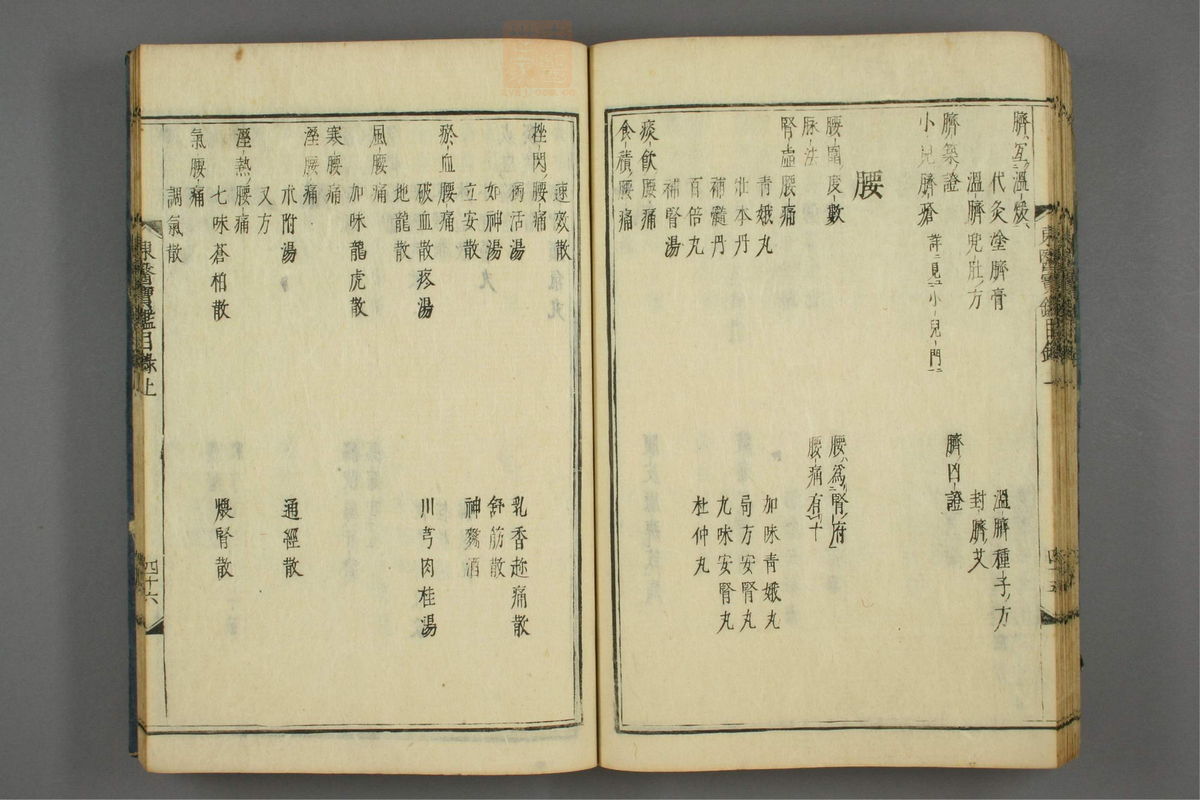 臍宜溫煖
代灸塗臍膏
溫臍種子方
溫臍兜肚方
封臍艾
臍築證
臍凶證
小兒臍瘡 詳見小兒門
腰
腰圍度數
腰爲腎府
脉法
腰痛有十
腎虛腰痛
青娥丸
加味青娥丸
壯本丹
局方安腎丸
補髓丹
九味安腎丸
百倍丸
杜仲丸
補腎湯
痰飲腰痛
食積腰痛
速效散
挫閃腰痛
獨活湯
乳香趂痛散
如神湯
舒筋散
立安散
神麴酒
瘀血腰痛
破血散疼湯
川芎肉桂湯
地龍散
風腰痛
加味龍虎散
寒腰痛
溼腰痛
朮附湯
通經散
又方
溼熱腰痛
七味蒼柏散
煨腎散
氣腰痛
調氣散
東醫寶鑑目錄上
四十六